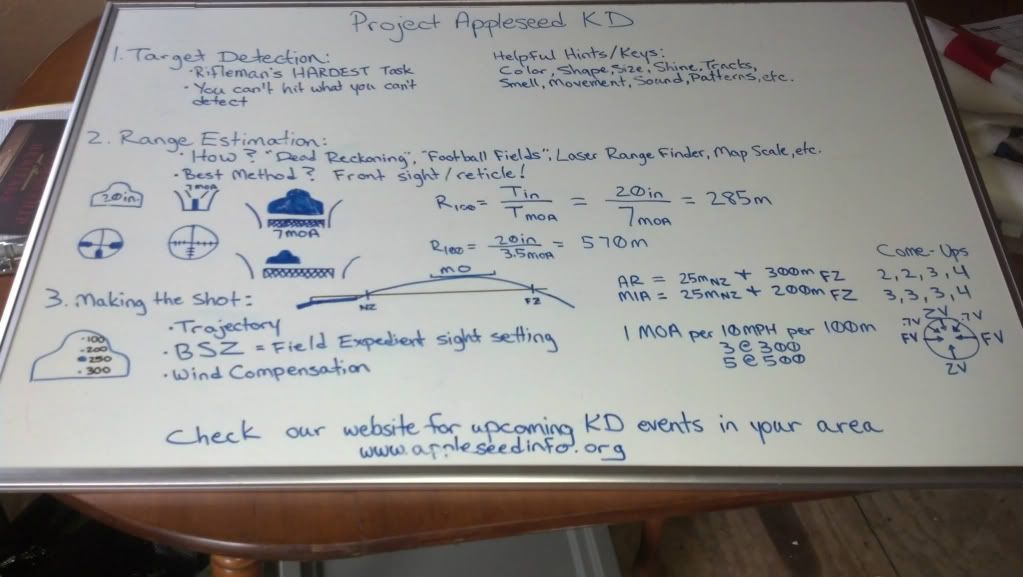 Project Appleseed KD
1. Target Detection:
• Rifleman's HARDEST Task
• You can't hit what you can't
detect
Helpful Hints/Keys:
Color, Shape, Size, Shine, Tracks,
Smell, Movement, Sound, Patterns, etc.
2. Range Estimation:
• How? "Dead Reckoning", "Football Fields", Laser Range Finder, Map Scale, etc.
• Best Method? Front sight/reticle!
20in.
7MOA
7MOA
R100 = Tin / TMOA = 20in / 7MOA = 285m
R100 = 20in / 3.5MOA = 570m
MO
NZ
FZ
Come-Ups
AR = 25mNZ + 300m FZ 2, 2, 3, 4
M1A = 25mNZ + 200m FZ 3, 3, 3, 4
3. Making the Shot:
• Trajectory
• BSZ = Field Expedient sight setting
• Wind Compensation
•100
•200
250
•300
1 MOA per 10MPH per 100m
3 @ 300
5 @ 500
ZV
.7V
.7V
FV
FV
ZV
Check our website for upcoming KD events in your area
www.appleseedinfo.org